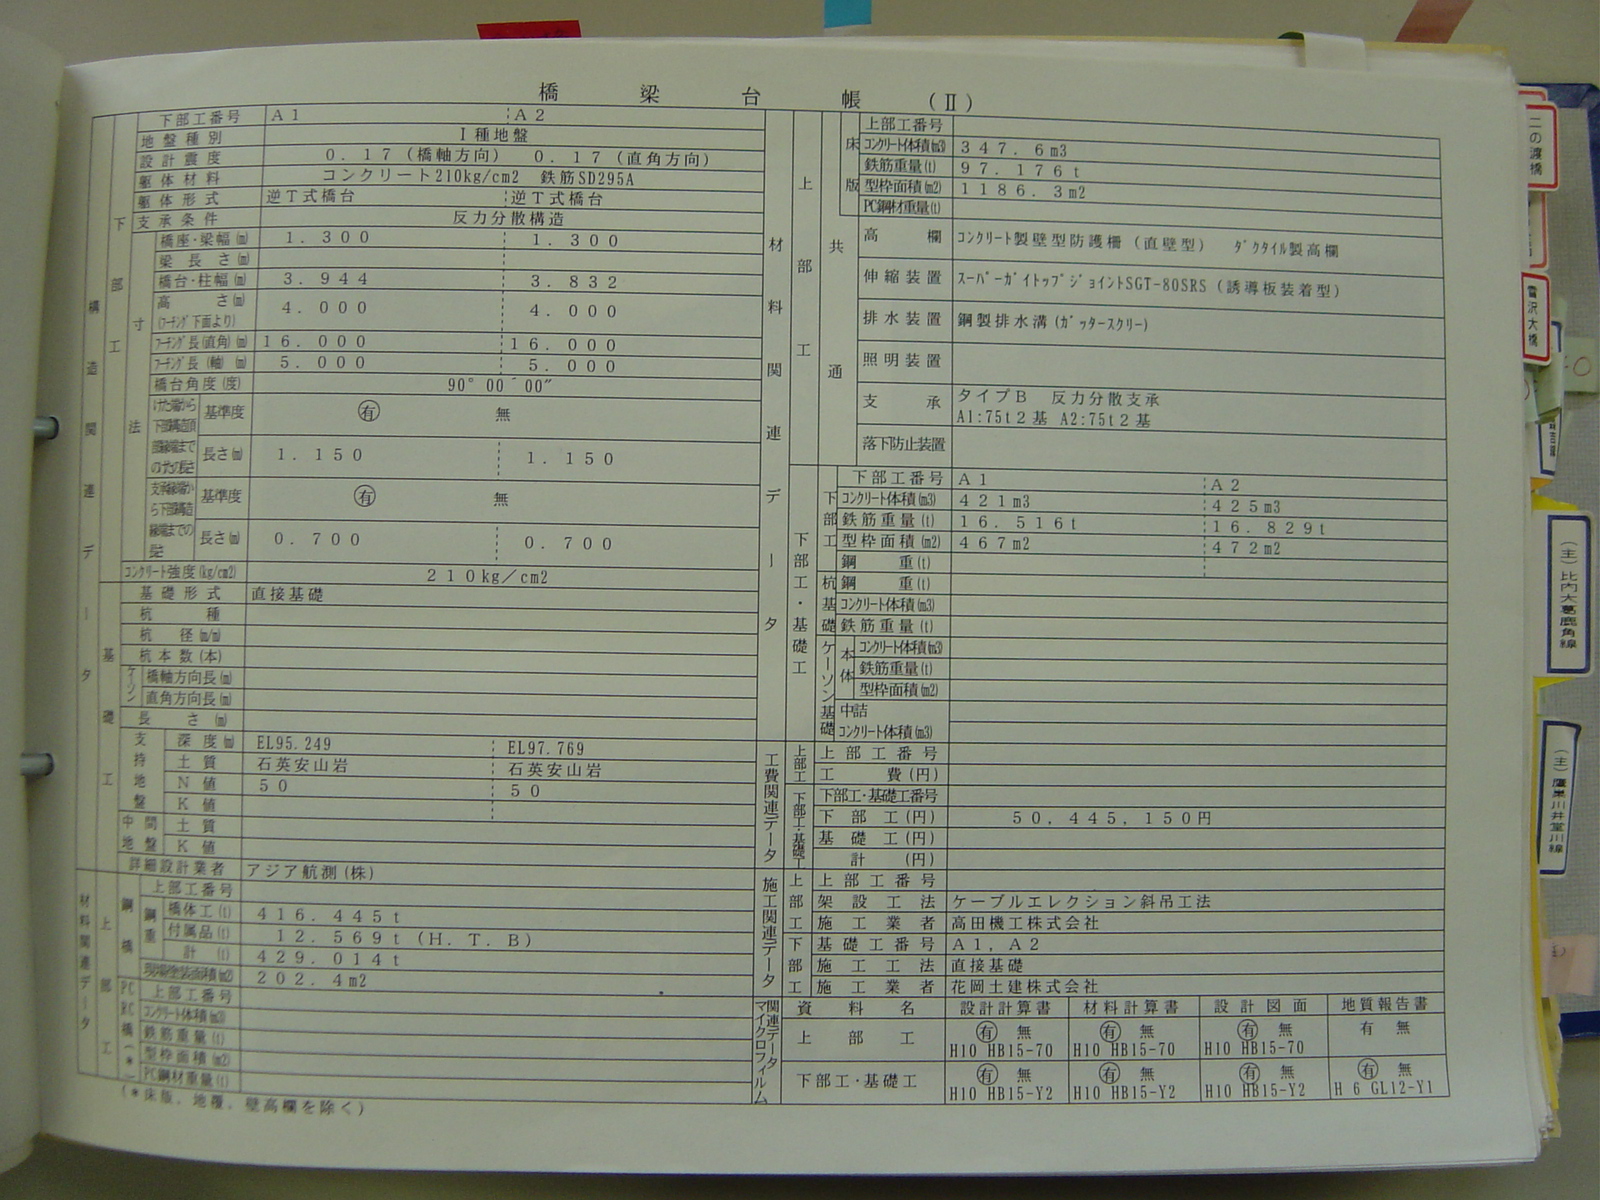 橋梁台帳(Ⅱ)
下部工番号 A1 A2
地盤種別 Ⅰ種地盤
設計震度 0.17(橋軸方向) 0.17(直角方向)
躯体材料 コンクリート210kg/cm2 鉄筋SD295A
躯体形式 逆T式橋台 逆T式橋台
支承条件 反力分散構造
構造関連データ
下部工
寸法
橋座・梁幅(m) 1.300 1.300
梁長さ(m)
橋台・柱幅(m) 3.944 3.832
高さ(m)
(フーチング下面より) 4.000 4.000
フーチング長(直角)(m) 16.000 16.000
フーチング長(軸)(m) 5.000 5.000
橋台角度(度) 90°00′00″
けた端から下部構造頂部縁端までのけたの長さ
基準度 有 無
長さ(m) 1.150 1.150
支承縁端から下部構造縁端までの長さ
基準度 有 無
長さ(m) 0.700 0.700
コンクリート強度(kg/cm2) 210kg/cm2
基礎工
基礎形式 直接基礎
杭種
杭径(m/m)
杭本数(本)
ケーソン
橋軸方向長(m)
直角方向長(m)
長さ(m)
支持地盤
深度(m) EL95.249 EL97.769
土質 石英安山岩 石英安山岩
N値 50 50
K値
中間地盤
土質
K値
詳細設計業者 アジア航測(株)
材料関連データ
上部工
鋼橋
上部工番号
鋼重
橋体工(t) 416.445t
付属品(t) 12.569t(H.T.B)
計(t) 429.014t
現場塗装面積(m2) 202.4m2
PC RC橋(*)
上部工番号
コンクリート体積(m3)
鉄筋重量(t)
型枠面積(m2)
PC鋼材重量(t)
(*床版、地覆、壁高欄を除く)
材料関連データ
上部工
共通
床版
上部工番号
コンクリート体積(m3) 347.6m3
鉄筋重量(t) 97.176t
型枠面積(m2) 1186.3m2
PC鋼材重量(t)
高欄 コンクリート製壁型防護柵(直壁型) ダクタイル製高欄
伸縮装置 スーパーガイトップジョイントSGT-80SRS(誘導板装着型)
排水装置 鋼製排水溝(ガッタースクリー)
照明装置
支承 タイプB 反力分散支承
A1:75t2基 A2:75t2基
落下防止装置
下部工・基礎工
下部工番号 A1 A2
下部工
コンクリート体積(m3) 421m3 425m3
鉄筋重量(t) 16.516t 16.829t
型枠面積(m2) 467m2 472m2
鋼重(t)
杭基礎
鋼重(t)
コンクリート体積(m3)
鉄筋重量(t)
ケーソン基礎
本体
コンクリート体積(m3)
鉄筋重量(t)
型枠面積(m2)
中詰
コンクリート体積(m3)
工費関連データ
上部工
上部工番号
工費(円)
下部工・基礎工
下部工・基礎工番号
下部工(円) 50,445,150円
基礎工(円)
計(円)
施工関連データ
上部工
上部工番号
架設工法 ケーブルエレクション斜吊工法
施工業者 高田機工株式会社
下部工
基礎工番号 A1,A2
施工工法 直接基礎
施工業者 花岡土建株式会社
関連データ
マイクロフィルム
資料名 設計計算書 材料計算書 設計図面 地質報告書
上部工 有 無 有 無 有 無 有 無
H10 HB15-70 H10 HB15-70 H10 HB15-70
下部工・基礎工 有 無 有 無 有 無 有 無
H10 HB15-Y2 H10 HB15-Y2 H10 HB15-Y2 H 6 GL12-Y1
二の渡橋
雪沢大橋
(主)比内大葛鹿角線
(主)鷹巣川井堂川線